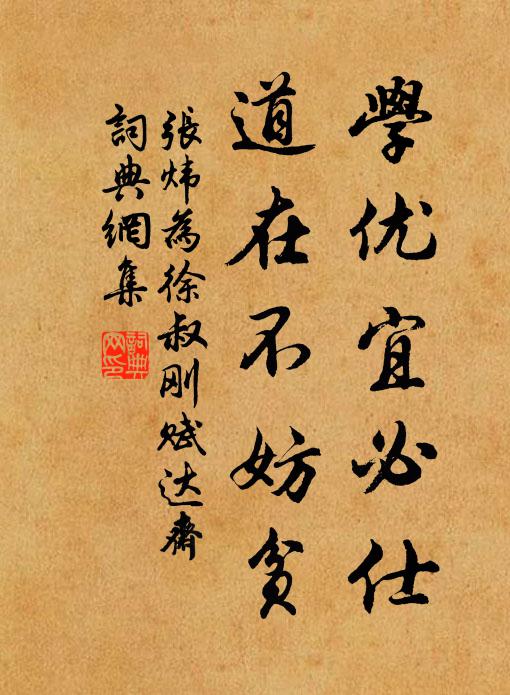 學优宜必仕
道在不妨贫
張炜為徐叔刚赋达齋
詞典網集
詞典网印